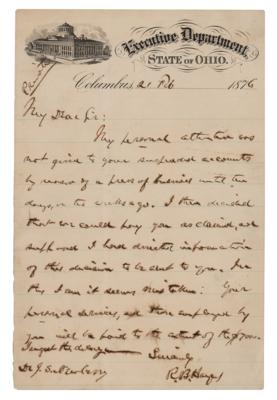 Executive Department,
STATE OF OHIO.
Columbus, 21 Feb 1876
My Dear Sir:
My personal attention was
not given to your suspended accounts
by reason of a press of business until two
days, or two weeks ago. I then decided
that we could pay you as claimed, and
supposed I had directed information
of this decision to be sent to you. In
this I am it seems mistaken. Your
personal services, and those employed by
you will be paid to the extent of the
I regret the delay
Sincerely
R. B. Hayes
Dr. J.